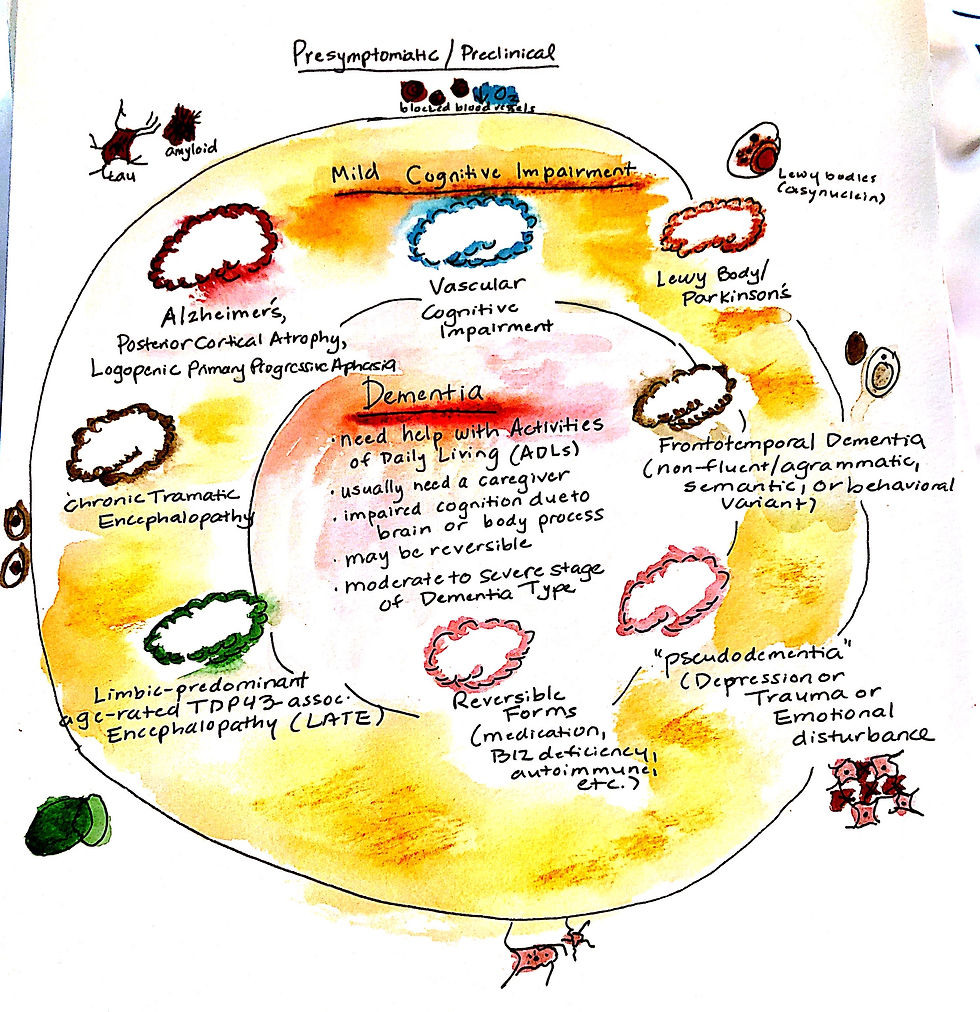 Presymptomatic / Preclinical
blocked blood vessels
O2
tau
amyloid
Mild Cognitive Impairment
Lewy bodies
(asynuclein)
Alzheimer's,
Posterior Cortical Atrophy,
Logopenic Primary Progressive Aphasia
Vascular
Cognitive
Impairment
Lewy Body/
Parkinson's
Dementia
· need help with Activities
of Daily Living (ADLs)
· usually need a caregiver
· impaired cognition due to
brain or body process
· may be reversible
· moderate to severe stage
of Dementia Type
Frontotemporal Dementia
(non-fluent/agrammatic,
semantic, or behavioral
variant)
Chronic Tramatic
Encephalopathy
Limbic-predominant
age-rated TDP43-assoc.
Encephalopathy (LATE)
Reversible
Forms
(medication,
B12 deficiency,
autoimmune,
etc.)
"pseudodementia"
(Depression or
Trauma or
Emotional
disturbance